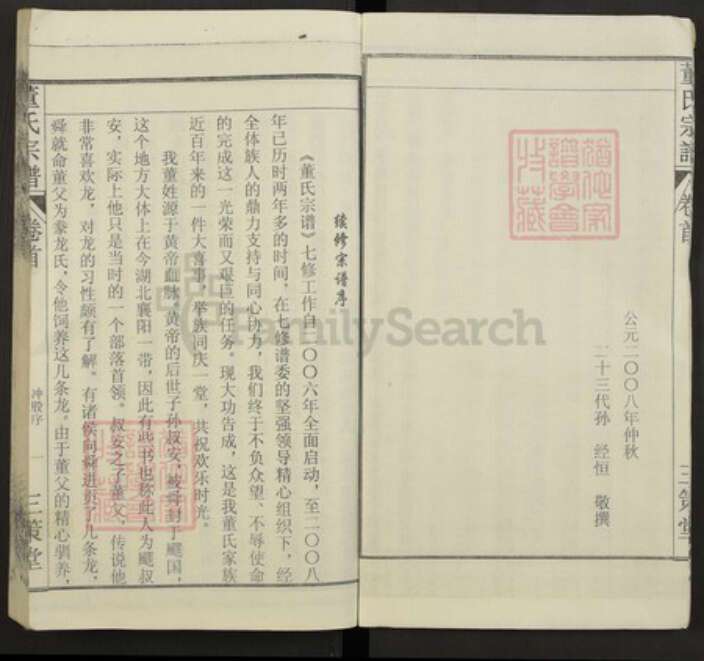 董氏宗譜
卷首
三策堂
公元二〇〇八年仲秋
二十三代孙 经恒 敬撰
续修宗谱序
《董氏宗谱》七修工作自二〇〇六年全面启动，至二〇〇八
年已历时两年多的时间，在七修谱委的坚强领导精心组织下，经
全体族人的鼎力支持与同心协力，我们终于不负众望、不辱使命
的完成这一光荣而又艰巨的任务。现大功告成，这是我董氏家族
近百年来的一件大喜事，举族同庆一堂，共祝欢乐时光。
我董姓源于黄帝血脉。黄帝的后世子孙叔安，被舜封于飂国，
这个地方大体上在今湖北襄阳一带，因此有些书也称此人为飂叔
安，实际上他只是当时的一个部落首领。叔安之子董父，传说他
非常喜欢龙，对龙的习性颇有了解。有诸侯向舜进贡了几条龙，
舜就命董父为豢龙氏，令他饲养这几条龙。由于董父的精心驯养，
董氏宗譜
卷首
冲股序
一
三策堂
FamilySearch